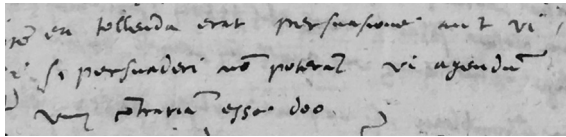 ea tollenda erat persuasione aut vi
si persuaderi nō poterat vi agendū
vim cōtrariā esse deo